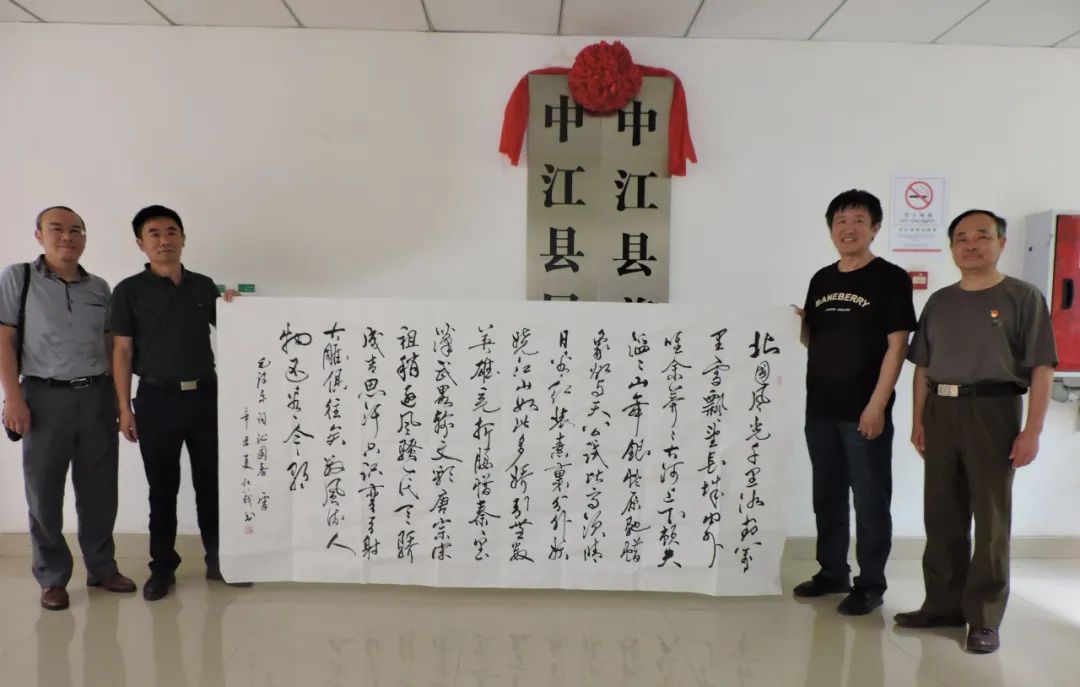 中江县
中江县
BANEBERRY
北國风光千里冰封萬
里雪飘望长城内外
惟余莽〻大河上下顿失
滔〻山舞银蛇原驰腊
象欲与天公试比高须晴
日看红装素裹分外妖
娆江山如此多娇引无数
英雄竞折腰惜秦皇
汉武略输文彩唐宗宋
祖稍逊风骚一代天骄
成吉思汗只识弯弓射
大雕俱往矣数风流人
物还看今朝
毛泽东词沁园春雪
辛丑夏